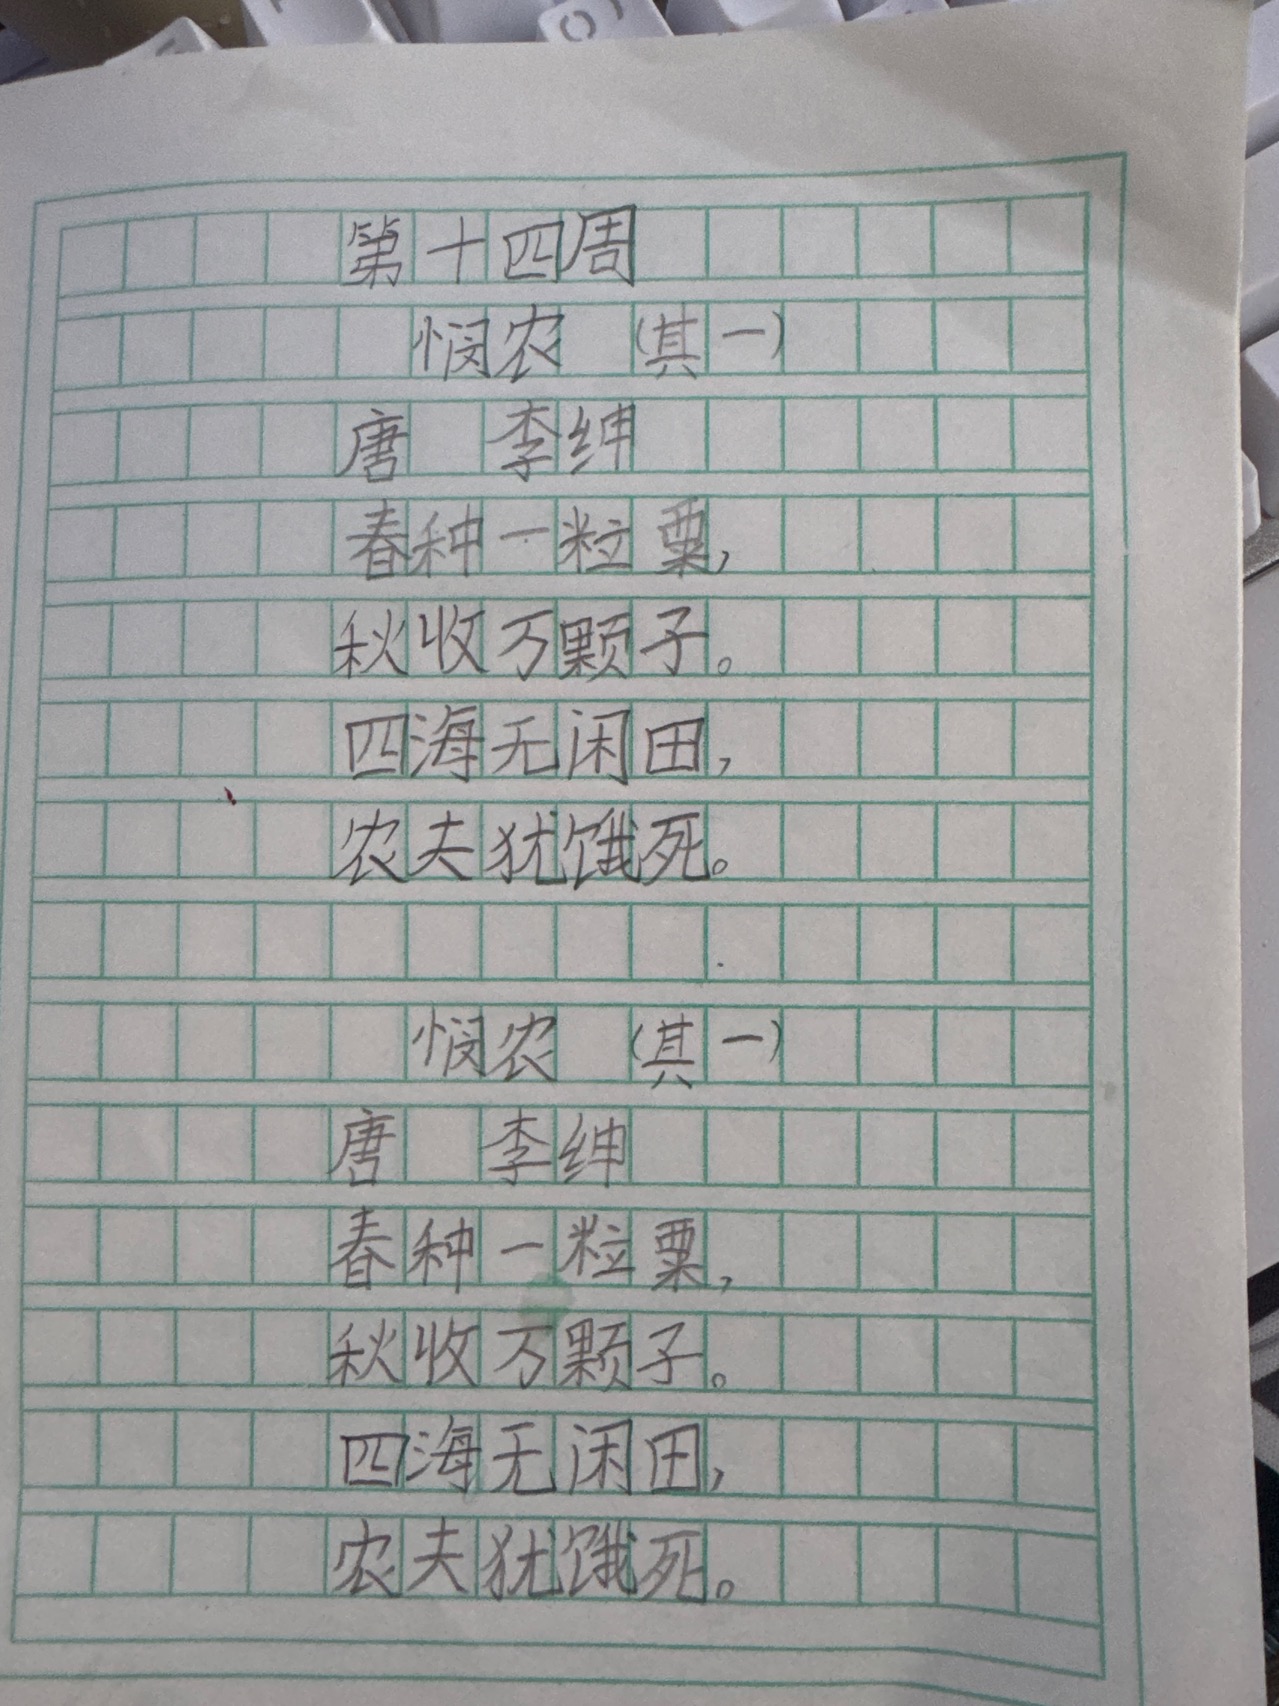 第十四周
悯农 (其一)
唐 李绅
春种一粒粟,
秋收万颗子。
四海无闲田,
农夫犹饿死。
悯农 (其一)
唐 李绅
春种一粒粟,
秋收万颗子。
四海无闲田,
农夫犹饿死。